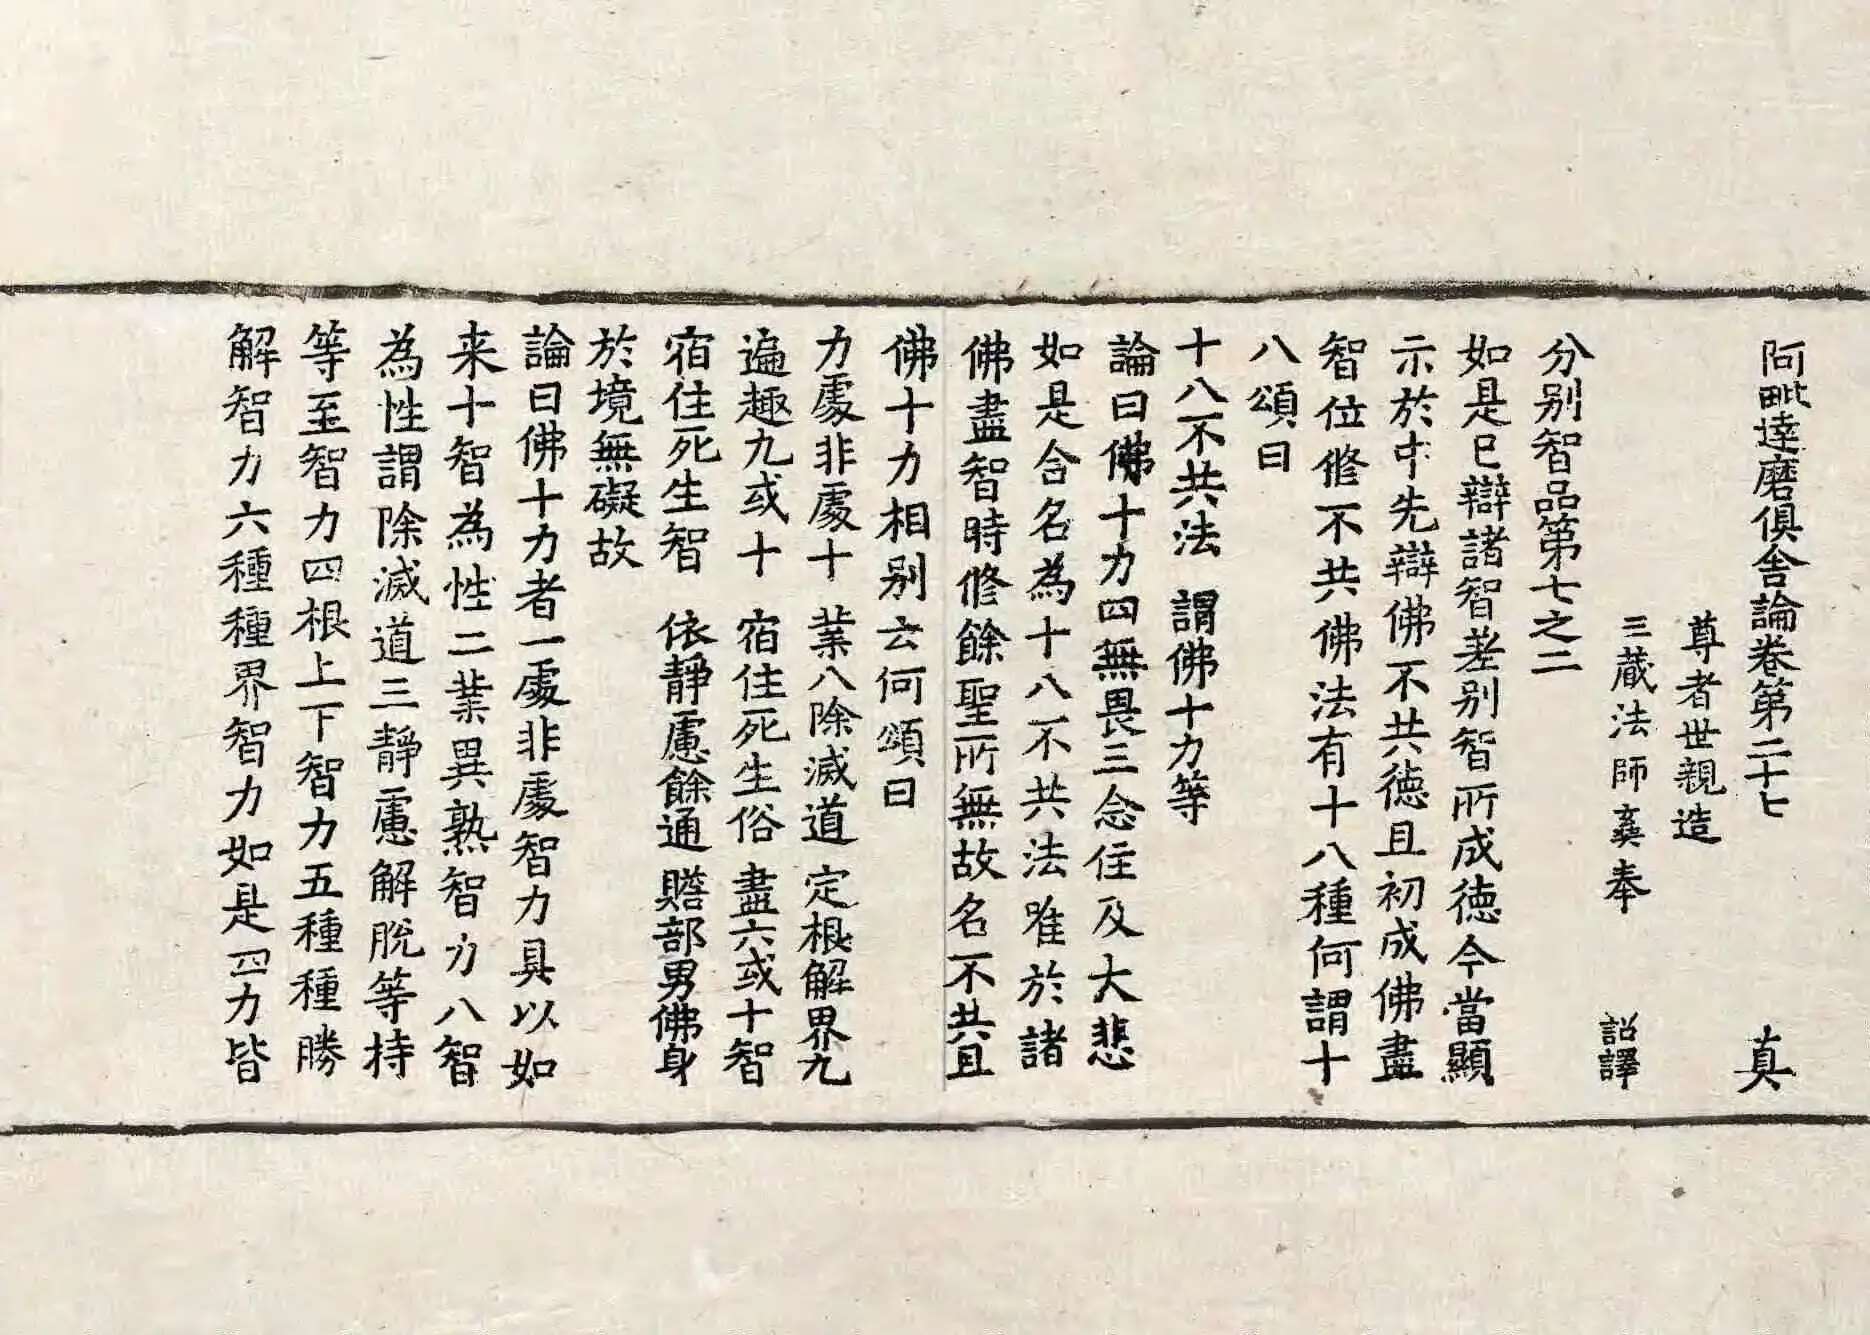 阿毗達磨俱舍論卷第二十七 真
尊者世親造
三藏法師奘奉 詔譯
分别智品第七之二
如是已辯諸智差别智所成德今當顯
示於中先辯佛不共德且初成佛盡
智位修不共佛法有十八種何謂十
八頌曰
十八不共法 謂佛十力等
論曰佛十力四無畏三念住及大悲
如是合名為十八不共法唯於諸
佛盡智時修餘聖所無故名不共且
佛十力相别云何頌曰
力處非處十 業八除滅道 定根解界九
遍趣九或十 宿住死生俗 盡六或十智
宿住死生智 依靜慮餘通 贍部男佛身
於境無礙故
論曰佛十力者一處非處智力具以如
来十智為性二業異熟智力八智
為性謂除滅道三靜慮解脫等持
等至智力四根上下智力五種種勝
解智力六種種界智力如是四力皆